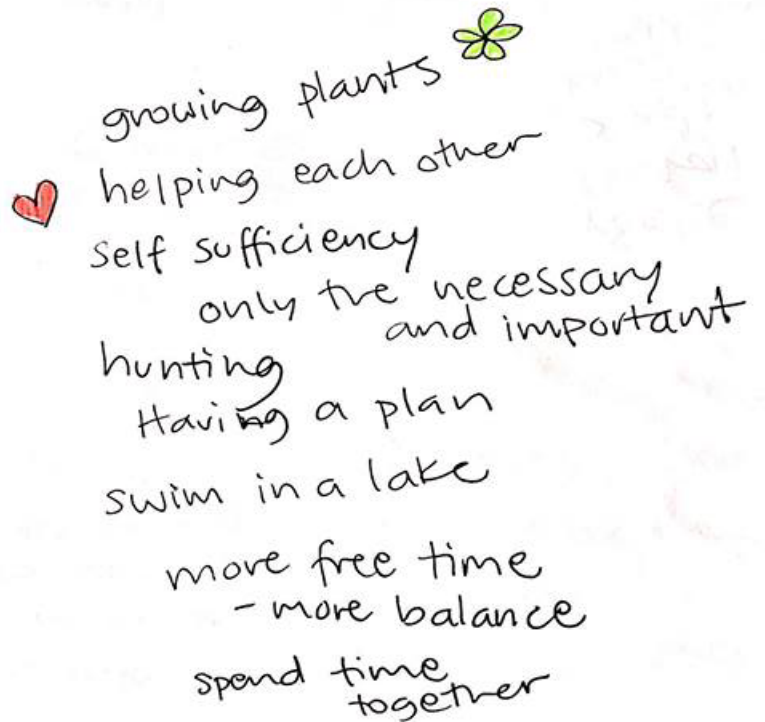 growing plants
helping each other
self sufficiency
only the necessary
and important
hunting
Having a plan
swim in a lake
more free time
- more balance
spend time
together